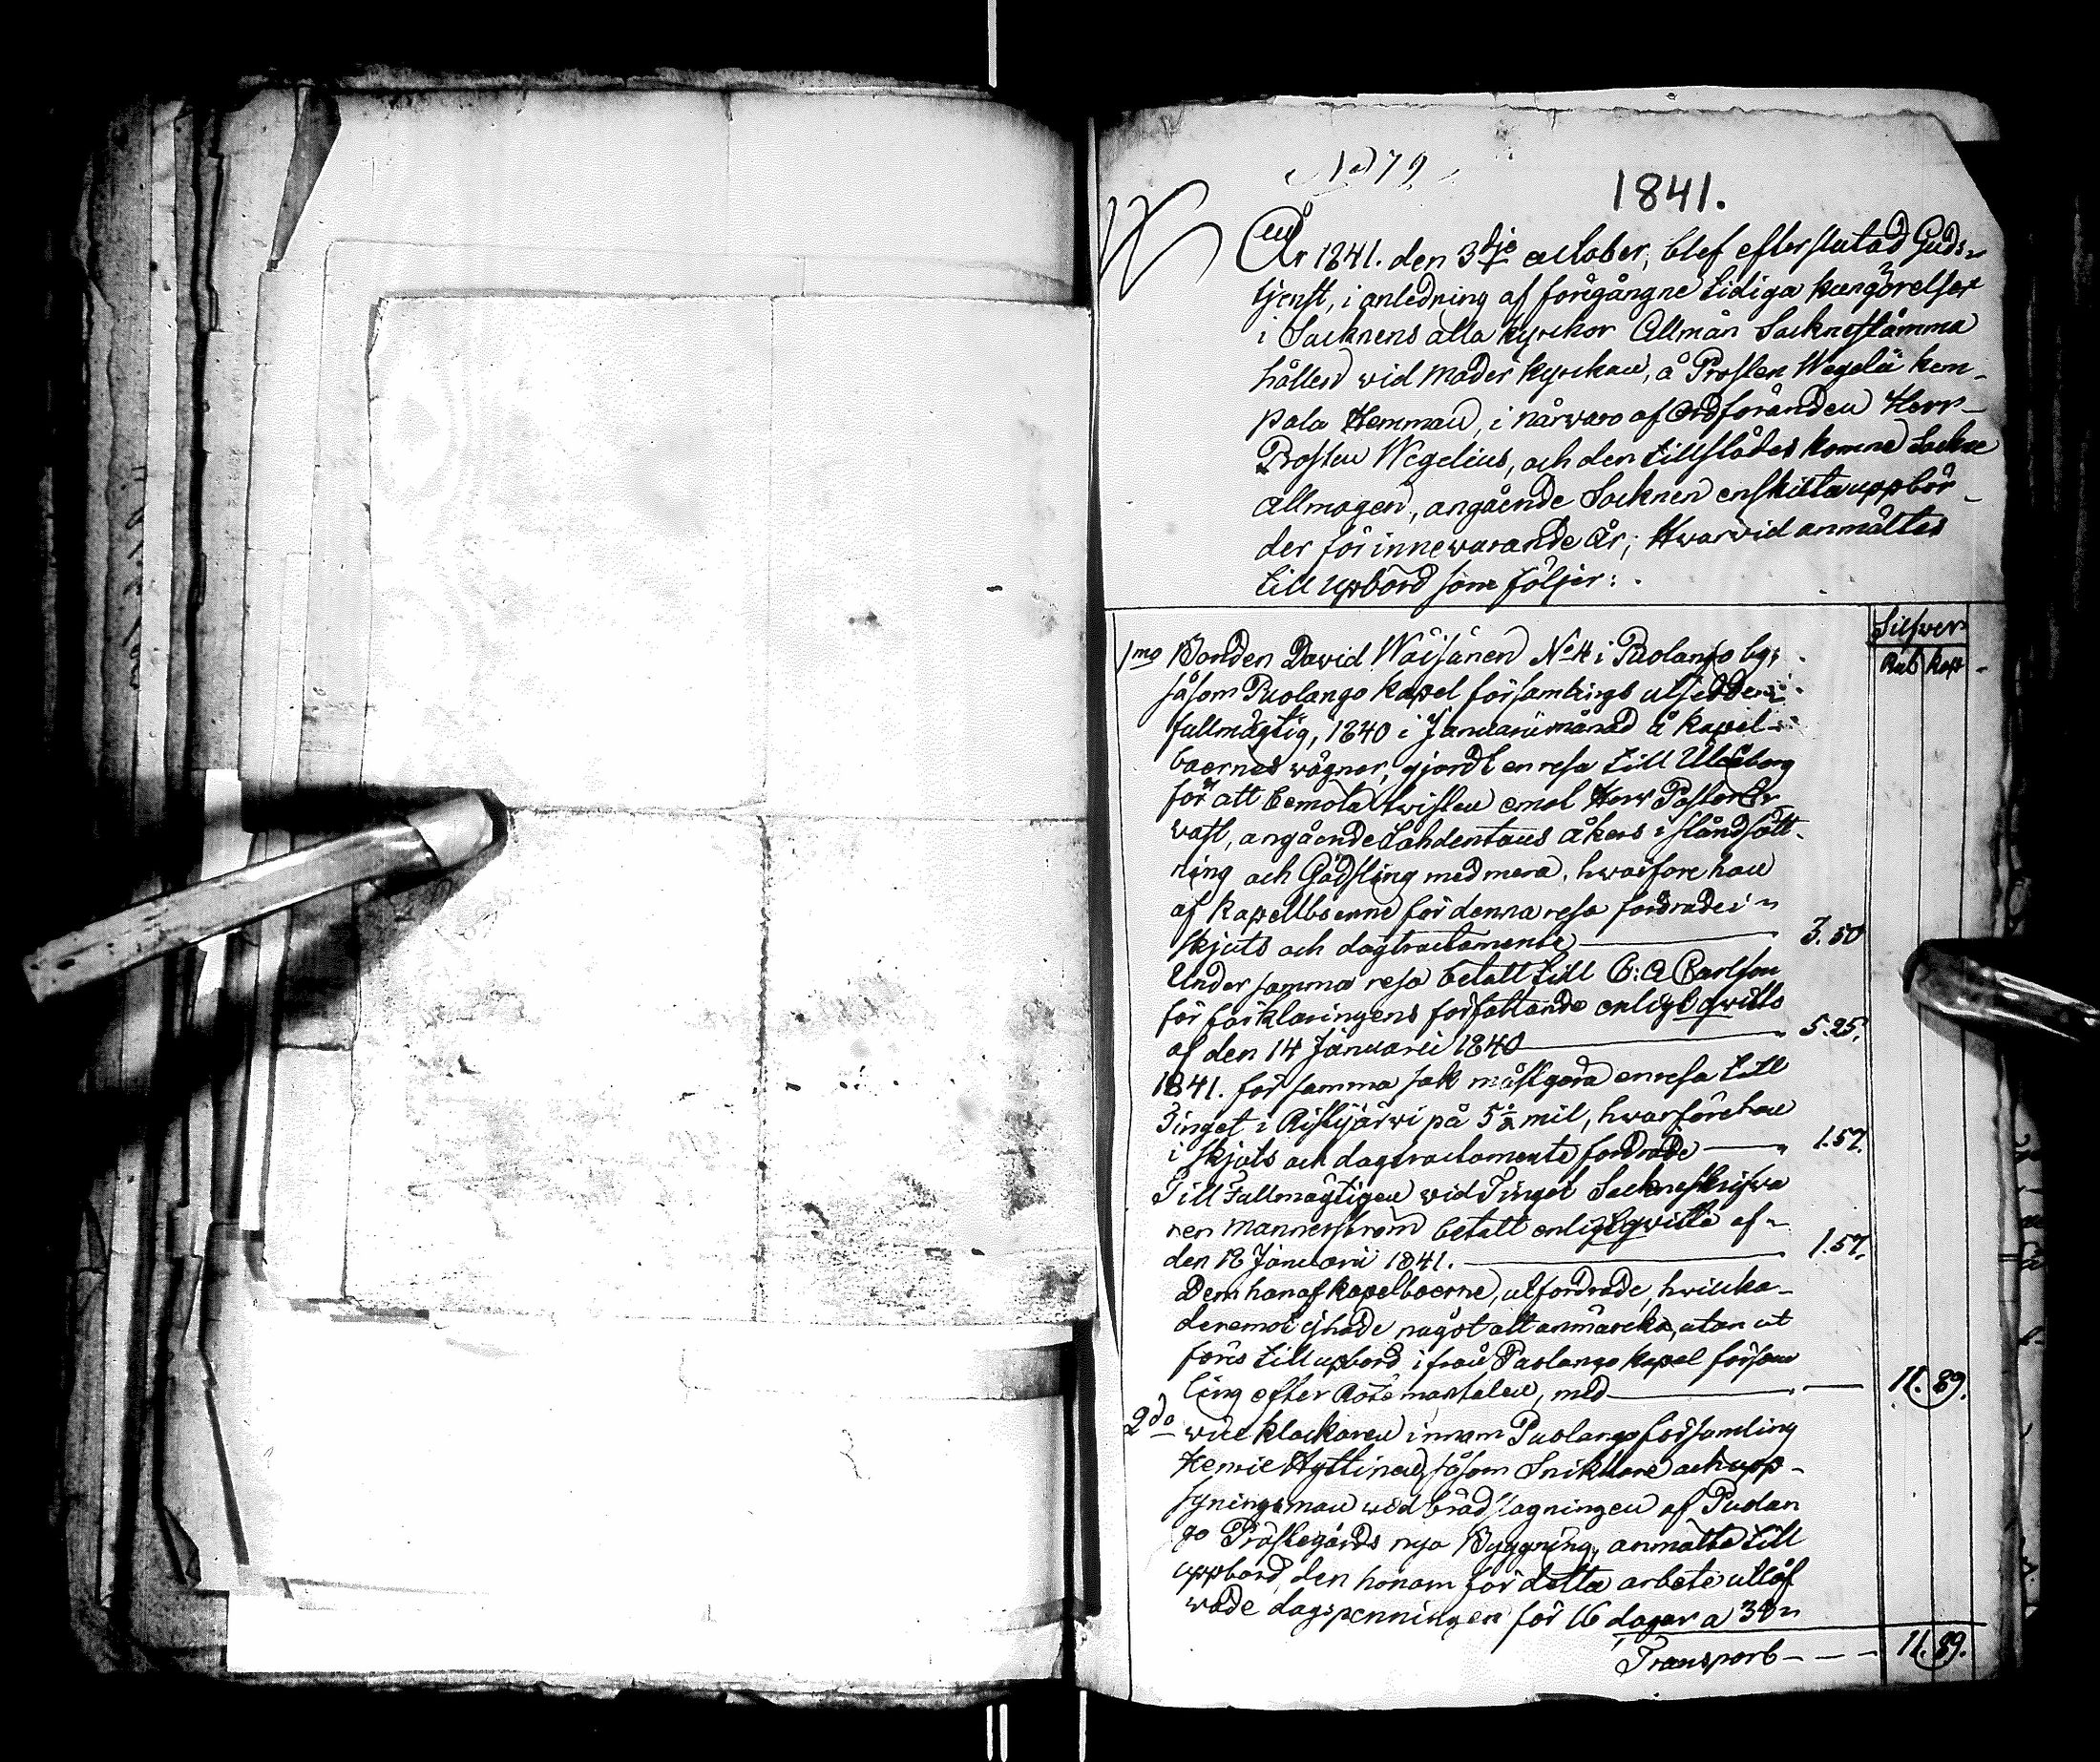 No 79
1841.
År 1841. den 3dje october, blef efter slutad Guds-
tjenst, i anledning af föregångne tidiga kungörelser
i Sacknens alla kyrckor Allmän Sacknestämma
hållen vid Moder kyrckan, å Prosten Wegelii kem-
pala Hemman, i närvaro af Ordföranden Herr
Prosten Wegelius, och den tillstädes komne Sockne
allmogen, angående Socknen enskilta uppbör-
der för innevarande År, Hvarvid anmältes
till upbörd som följer:
Silfver
Rub kop
1mo Bonden David Wäisänen No 4 i Puolango by,
såsom Puolango kapel församlings utsedde
fullmägtig, 1840 i Januarii månad å kapel-
boernes vägnar, gjordt en resa till Uleåborg
för att bemöta twisten emot Herr Pastor Er
vast, angående Lahdentaus åkers i ståndsätt-
ning och Gödsling med mera, hvarföre han
af kapellboerne för denna resa fordrade i
skjuts och dagtractamente 3. 50
Under samma resa betalt till C: A Carlson
för förklaringens författande enligt qvitto
af den 14 Januarii 1840 5. 25.
1841. för samma sak måst göra en resa till
Tinget i Ristijärvi på 5 1/2 mil, hvarföre han
i skjuts och dagtractamente fordrade 1. 57.
Till Fullmägtigen vid Tinget Sockneskrifva
ren Mannerström betalt enligt qvitto af
den 18 Januarii 1841. 1. 57.
Dem han af kapelboerne, utfordrade, hvilka
deremot ej hade något att anmärcka, utan ut
föres till upbörd ifrån Puolango kapel försam
ling efter Rotemantalen, med 11. 89.
2do vice klockaren innom Puolango församling
Henric Hyttinen, såsom Snickare och upp-
syningsman vid brädsagningen af Puolan
go Prästegårds nya Byggning, anmälte till
uppbörd den honom för detta arbete utlof
vade dagspenningen för 16 dagar a 38
Transport - - - 11. 89.